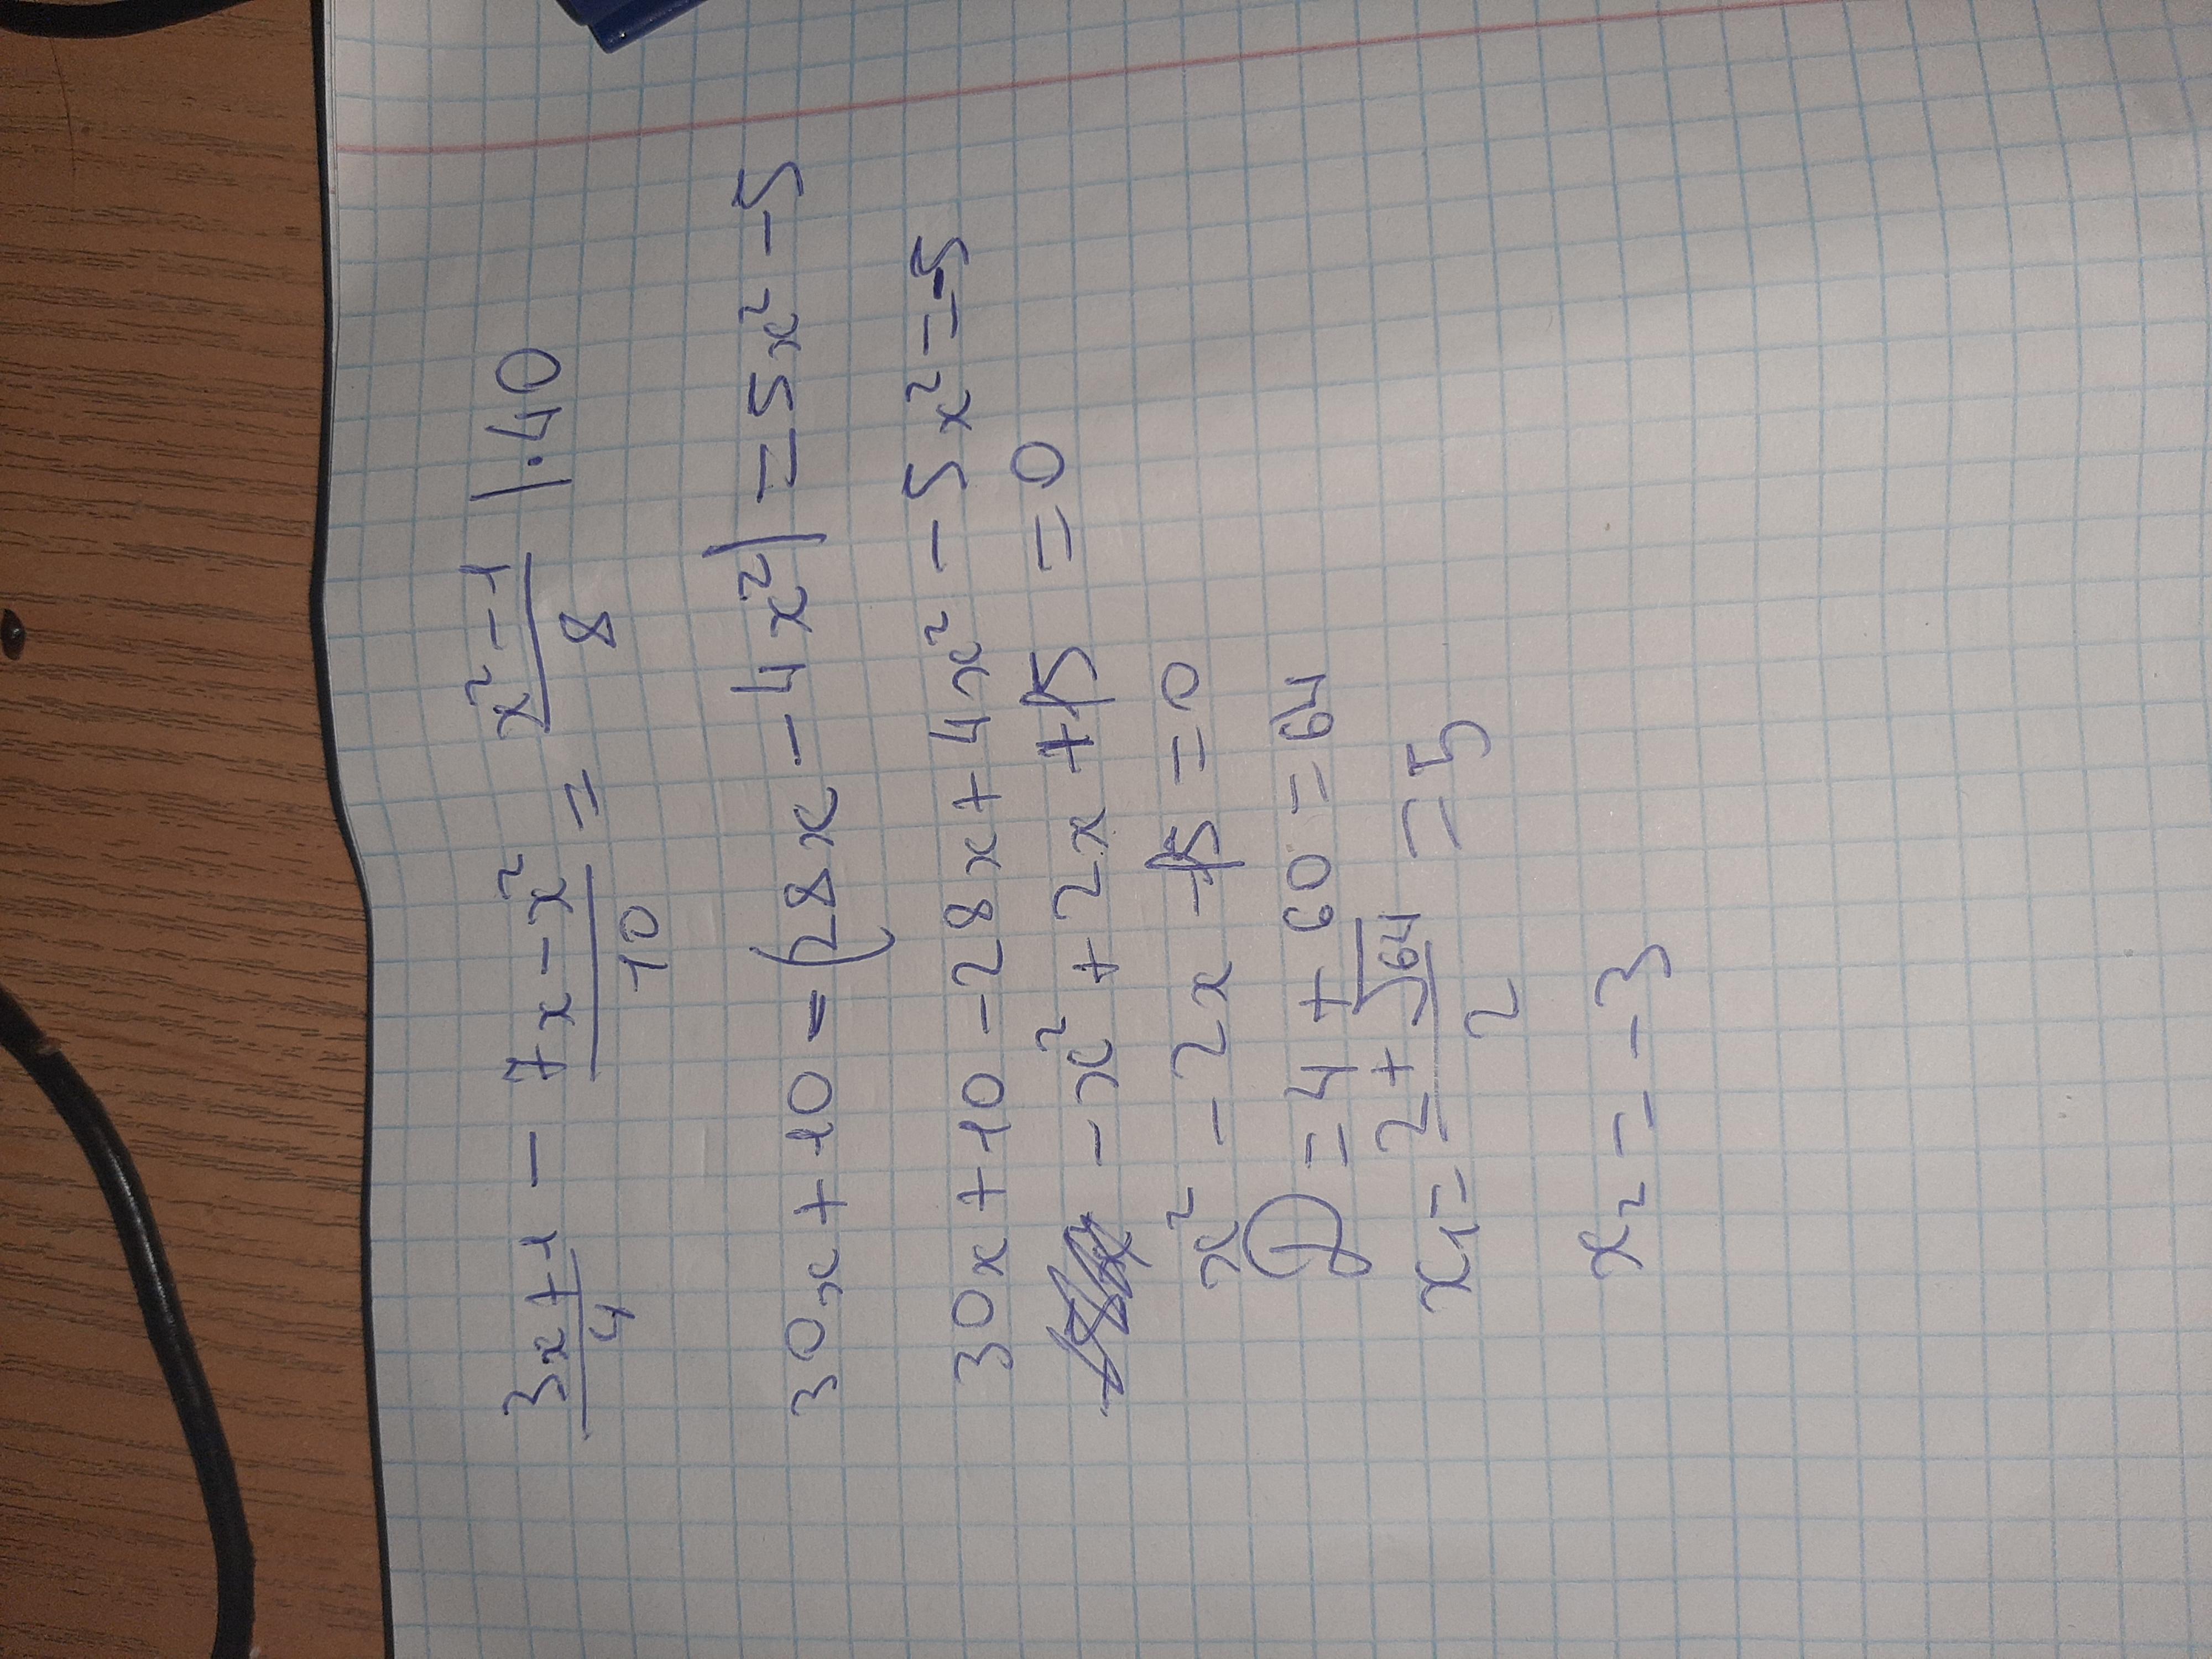 (3x+1)/4 - (7x-x²)/10 = (x²-1)/8 |·40
30x+10-(28x-4x²)=5x²-5
30x+10-28x+4x²-5x²=-5
-x²+2x+15=0
x²-2x-15=0
D=4+60=64
x1=(2+√64)/2=5
x2=-3